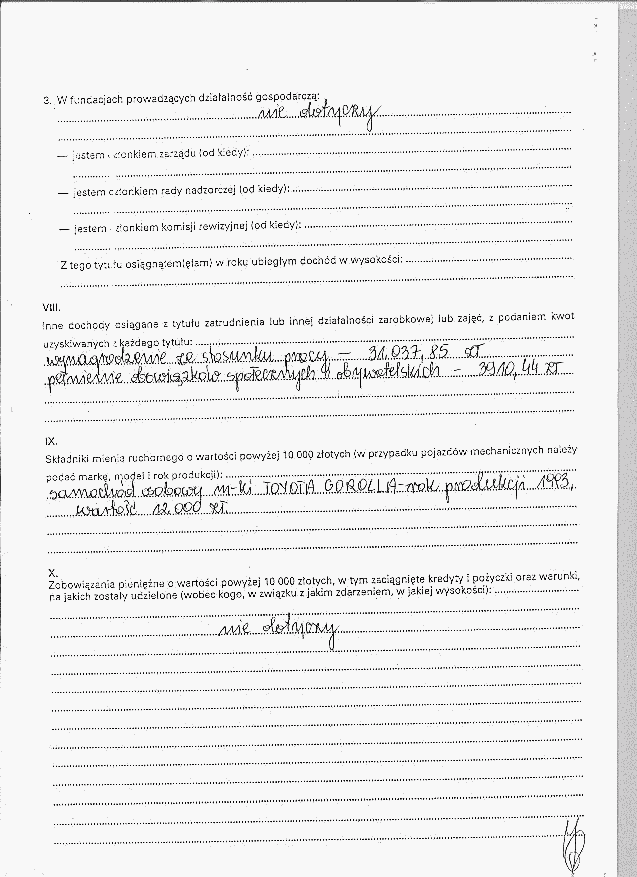 3. W fundacjach prowadzących działalność gospodarczą:
nie dotyczy
— jestem członkiem zarządu (od kiedy):
— jestem członkiem rady nadzorczej (od kiedy):
— jestem członkiem komisji rewizyjnej (od kiedy):
Z tego tytułu osiągnąłem(ęłam) w roku ubiegłym dochód w wysokości:
VIII.
Inne dochody osiągane z tytułu zatrudnienia lub innej działalności zarobkowej lub zajęć, z podaniem kwot
uzyskiwanych z każdego tytułu:
wynagrodzenie ze stosunku pracy – 31.037,85 zł
pełnienie obowiązków społecznych i obywatelskich – 3910,44 zł
IX.
Składniki mienia ruchomego o wartości powyżej 10 000 złotych (w przypadku pojazdów mechanicznych należy
podać markę, model i rok produkcji):
samochód osobowy m-ki TOYOTA COROLLA-rok produkcji 1993,
wartość 12.000 zł.
X.
Zobowiązania pieniężne o wartości powyżej 10 000 złotych, w tym zaciągnięte kredyty i pożyczki oraz warunki,
na jakich zostały udzielone (wobec kogo, w związku z jakim zdarzeniem, w jakiej wysokości):
nie dotyczy